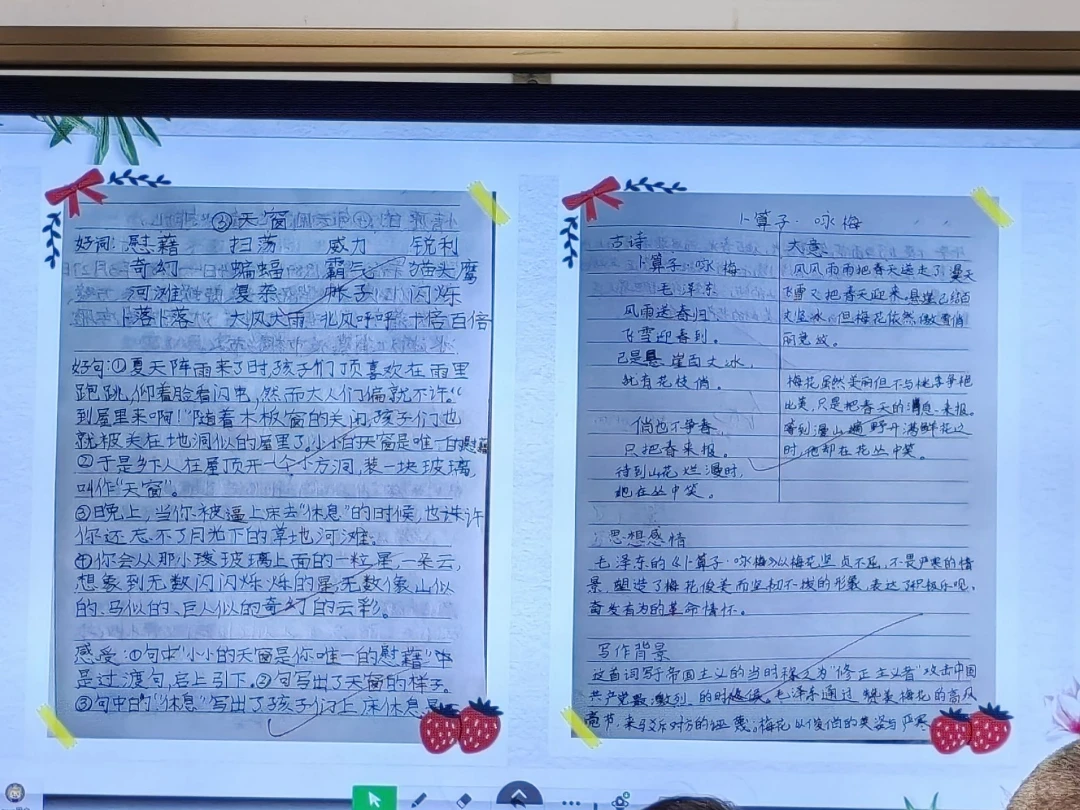 ③天窗
好词:慰藉 扫荡 威力 锐利
奇幻 蝙蝠 霸气 猫头鹰
河滩 复杂 帐子 闪烁
卜落卜落 大风大雨 北风呼呼 十倍百倍
好句:①夏天阵雨来了时,孩子们顶喜欢在雨里
跑跳,仰着脸看闪电,然而大人们偏就不许。“
到屋里来啊!”随着木板窗的关闭,孩子们也
就被关在地洞似的屋里了,小小的天窗是唯一的慰藉
②于是乡下人在屋顶开一个小方洞,装一块玻璃,
叫作“天窗”。
③晚上,当你被逼上床去“休息”的时候,也许
你还忘不了月光下的草地河滩,
④你会从那小玻璃上面的一粒星,一朵云,
想象到无数闪闪烁烁的星,无数像山似
的、马似的、巨人似的奇幻的云彩。
感受:①句中“小小的天窗是你唯一的慰藉”中
是过渡句,启上引下。②句写出了天窗的样子。
③句中的“休息”写出了孩子们上床休息
卜算子·咏梅
古诗
卜算子·咏梅
毛泽东
风雨送春归,
飞雪迎春到。
已是悬崖百丈冰,
犹有花枝俏。
俏也不争春,
只把春来报。
待到山花烂漫时,
她在丛中笑。
大意
风风雨雨把春天送走了,漫天
飞雪飞把春天迎来,悬崖已结百
丈坚冰,但梅花依然傲雪俏
丽竞放。
梅花虽然美丽但不与桃李争艳
比美,只是把春天的消息来报。
等到漫山遍野开满鲜花之
时,他却在花丛中笑。
思想感情
毛泽东的《卜算子·咏梅》以梅花坚贞不屈,不畏严寒的情
景,塑造了梅花俊美而坚韧不拔的形象,表达了积极乐观,
奋发有为的革命情怀。
写作背景
这首词写于帝国主义的当时称之为“修正主义者”攻击中国
共产党最激烈的时候,毛泽东通过赞美梅花的高风
亮节,来驳斥对方的诬蔑。梅花以俊俏的美姿与严寒